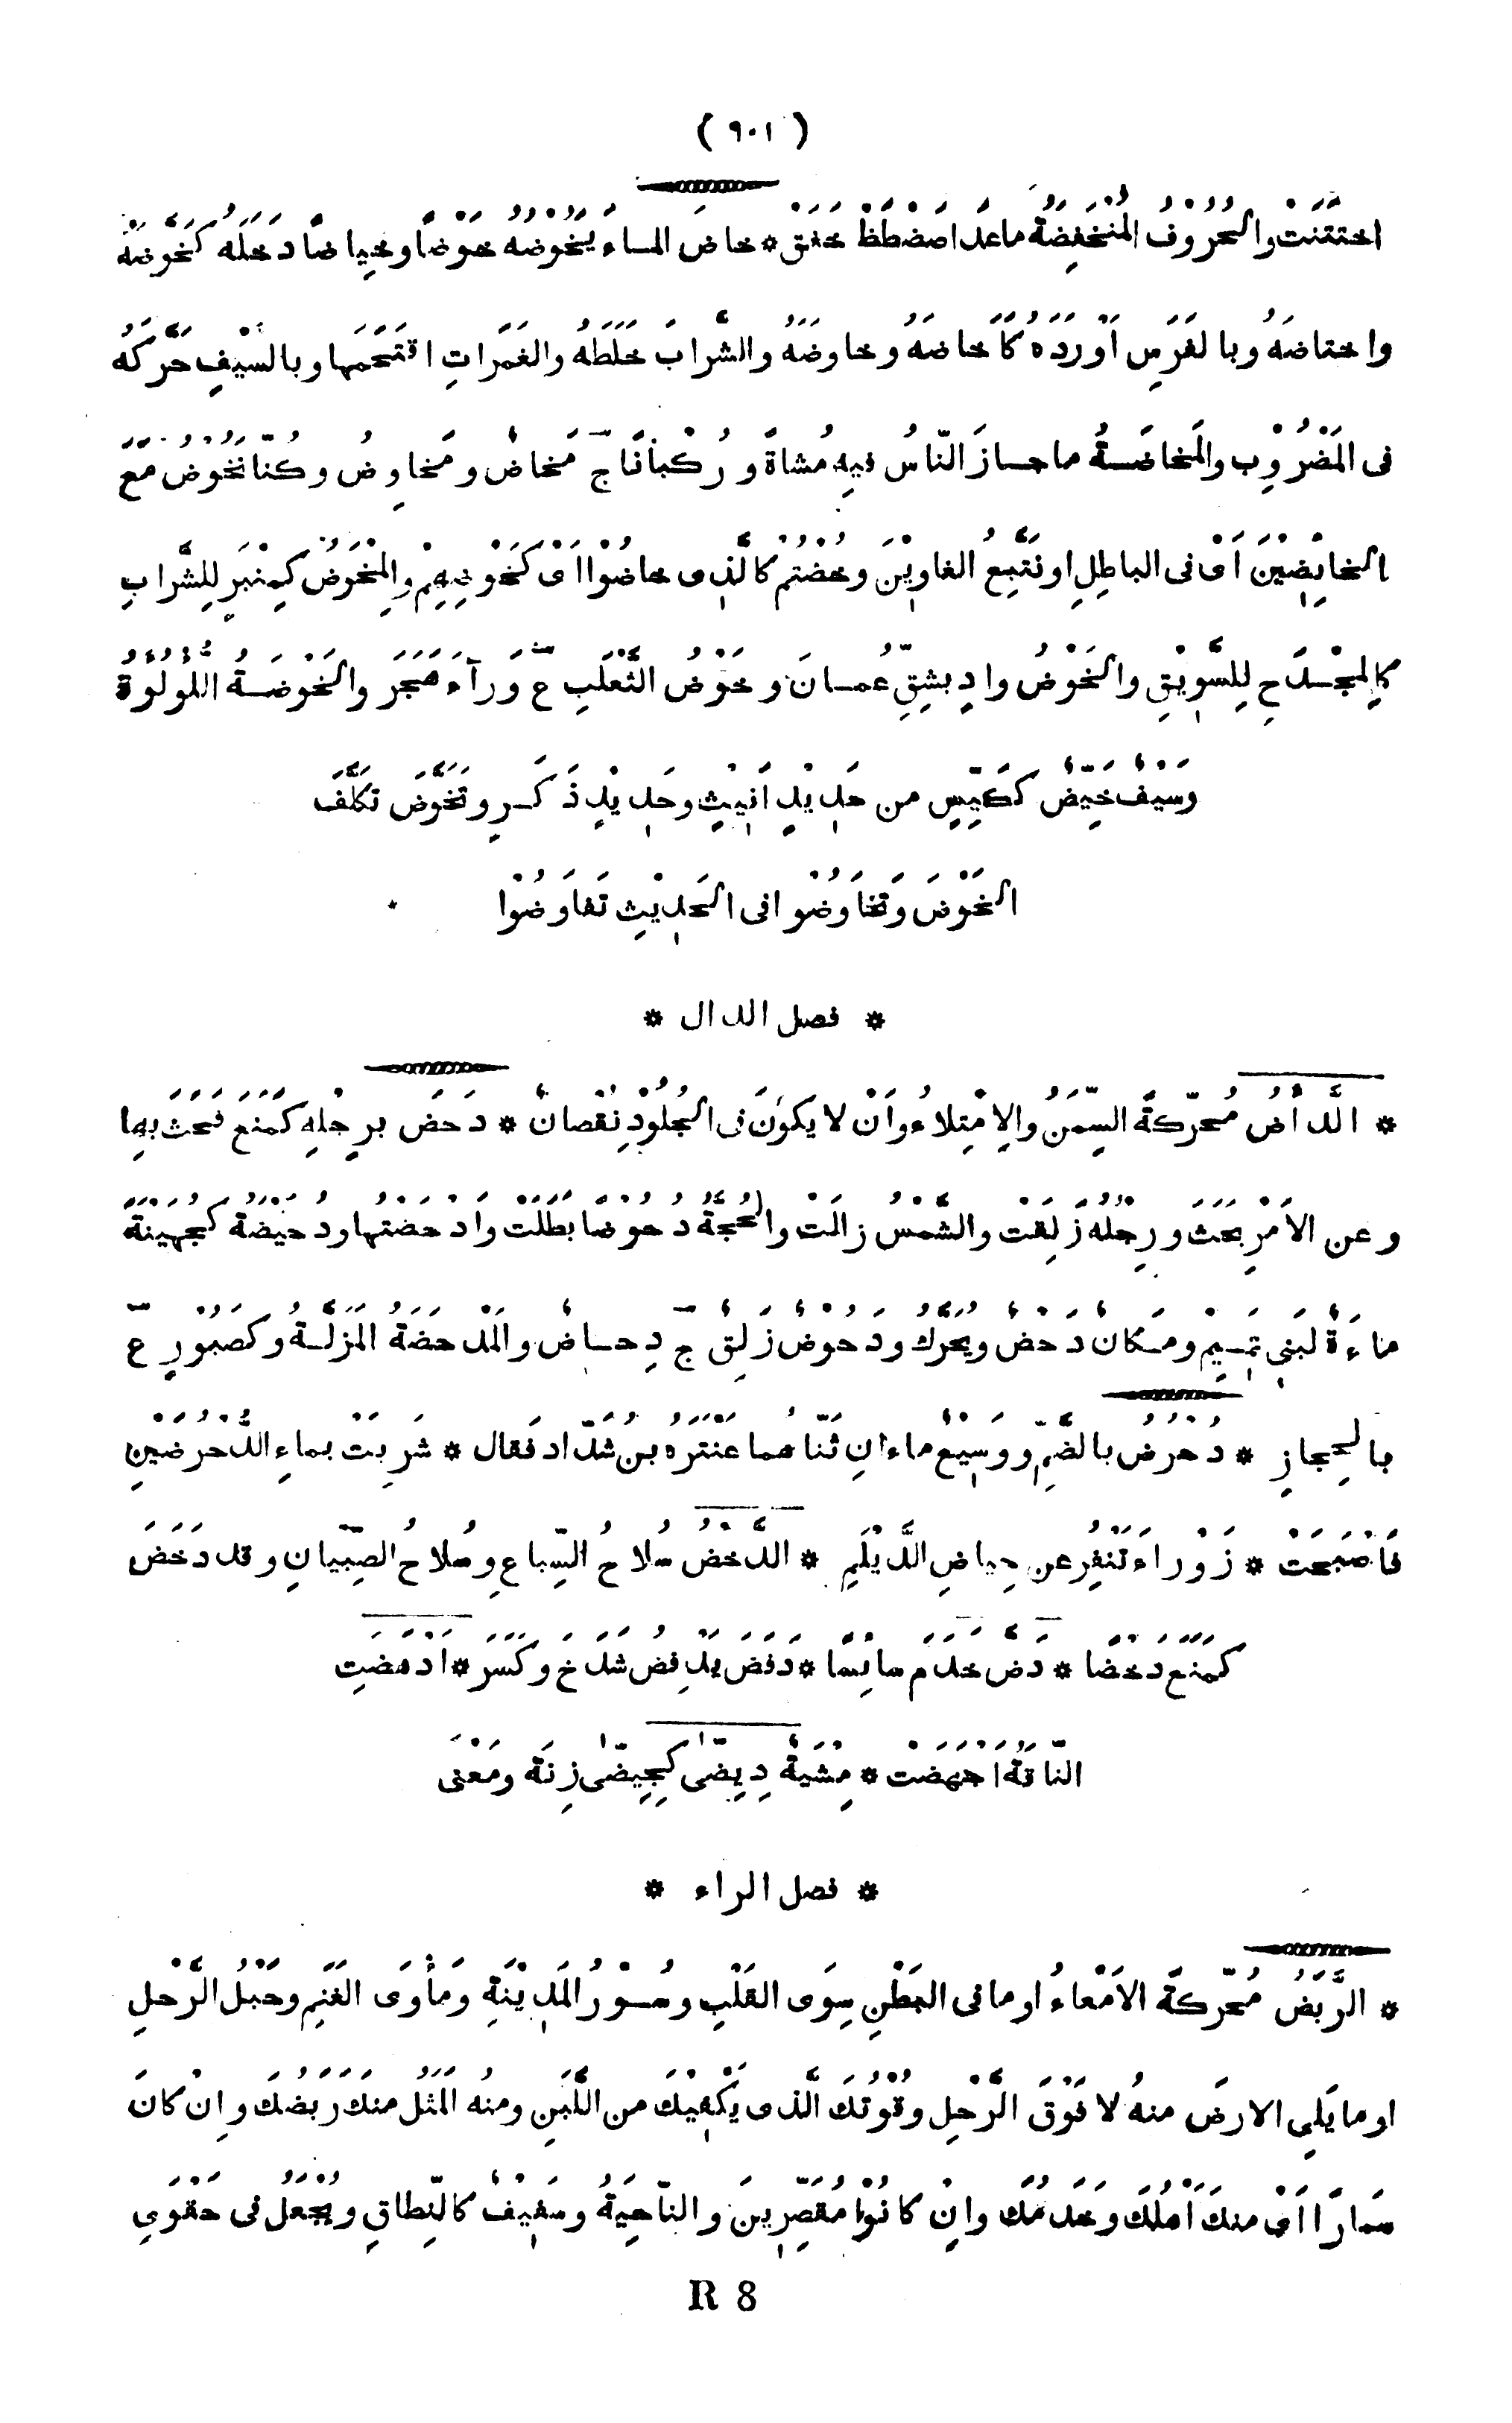 ( ٩٠١ )
اختتنت والحُرُوْفُ المُنْخَفِضَةُ ماعَدا صَضْطَظْ خَغَقْ * خاضَ الماءَ يَخُوْضُهُ خَوْضًا وخِياضًا دَخَلَهُ كَخَوَّضَهُ
واخْتاضَهُ وبالفَرَسِ أَوْرَدَهُ كَأَخاضَهُ وخاوَضَهُ والشَّرابَ خَلَطَهُ والغَمَراتِ اقْتَحَمَها وبالسَّيْفِ حَرَّكَهُ
فى المَضْرُوْبِ والمَخاضَةُ ماجازَ النّاسُ فيهِ مُشاةً ورُكْبانًا ج مَخاضٌ ومَخاوِضُ وكُنّا نَخُوْضُ مَعَ
الخائِضِيْنَ أَىْ فى الباطِلِ او نَتَّبِعُ الغاوِيْنَ وخُضْتُمْ كالَّذى خاضُوْا أَىْ كَخَوْضِهِمْ والمِخْوَضُ كمِنْبَرٍ لِلشَّرابِ
كالمِجْدَحِ لِلسَّوِيْقِ والخَوْضُ وادٍ بشِقِّ عُمانَ وخَوْضُ الثَّعْلَبِ ع وَرآءَ هَجَرَ والخَوْضَةُ اللُّؤْلُؤَةُ
وسَيْفٌ خَيِّضٌ كَكَيِّسٍ من حَدِيْدٍ أَنِيْثٍ وحَدِيْدٍ ذَكَرٍ وتَخَوَّضَ تَكَلَّفَ
الخَوْضَ وتَخاوَضُوْا فى الحَدِيْثِ تَفاوَضُوْا
* فصل الدال *
* الدَّأَضُ مُحَرَّكَةً السِّمَنُ والاِمْتِلاءُ وأَنْ لا يَكُوْنَ فى الجُلُوْدِ نُقْصانٌ * دَحَضَ برِجْلِهِ كَمَنَعَ فَحَثَ بِها
وعن الاَمْرِ بَحَثَ ورِجْلُهُ زَلِقَتْ والشَّمْسُ زالَتْ والحُجَّةُ دُحُوْضًا بَطَلَتْ وأَدْحَضْتُها ودُحَيْضَةُ كَجُهَيْنَةَ
ماءَةٌ لبَنِى تَمِيْمٍ ومَكانٌ دَحْضٌ ويُحَرَّكُ ودَحُوْضٌ زَلِقٌ ج دِحاضٌ والمَدْحَضَةُ المَزَلَّةُ وكصَبُوْرٍ ع
بالحِجازِ * دُحْرُضٌ بالضَّمِّ ووَسِيْعٌ ماءانِ ثَنّاهُما عَنْتَرَةُ بنُ شَدّادٍ فَقال * شَرِبَتْ بماءِ الدُّحْرُضَيْنِ
فَأَصْبَحَتْ * زَوْراءَ تَنْفِرُ عن حِياضِ الدَّيْلَمِ * الدَّخْضُ سُلاحُ السِّباعِ وسُلاحُ الصِّبْيانِ وقد دَخَضَ
كمَنَعَ دَخْضًا * دَضَّ خَدَمَ سائِسًا * دَفَضَ يَدْفِضُ شَدَخَ وكَسَرَ * أَدْهَضَتِ
النّاقَةُ أَجْهَضَتْ * مِشْيَةٌ دِيِضَّى كجِيِضَّى زِنَةً ومَعْنًى
* فصل الراء *
* الرَّبَضُ مُحَرَّكَةً الاَمْعاءُ او ما فى البَطْنِ سِوَى القَلْبِ وسُوْرُ المَدِيْنَةِ ومَأْوَى الغَنَمِ وحَبْلُ الرَّحْلِ
او ما يَلِى الارضَ منهُ لا فَوْقَ الرَّحْلِ وقُوْتُكَ الَّذى يَكْفِيْكَ من اللَّبَنِ ومنهُ المَثَلُ منكَ رَبَضُكَ وانْ كانَ
سَمارًا أَىْ منكَ أَهْلُكَ وخَدَمُكَ وانْ كانُوْا مُقَصِّرِينَ والنّاحِيَةُ وسَفِيْفٌ كالنِّطاقِ ويُجْعَلُ فى حَقْوَىِ
R 8